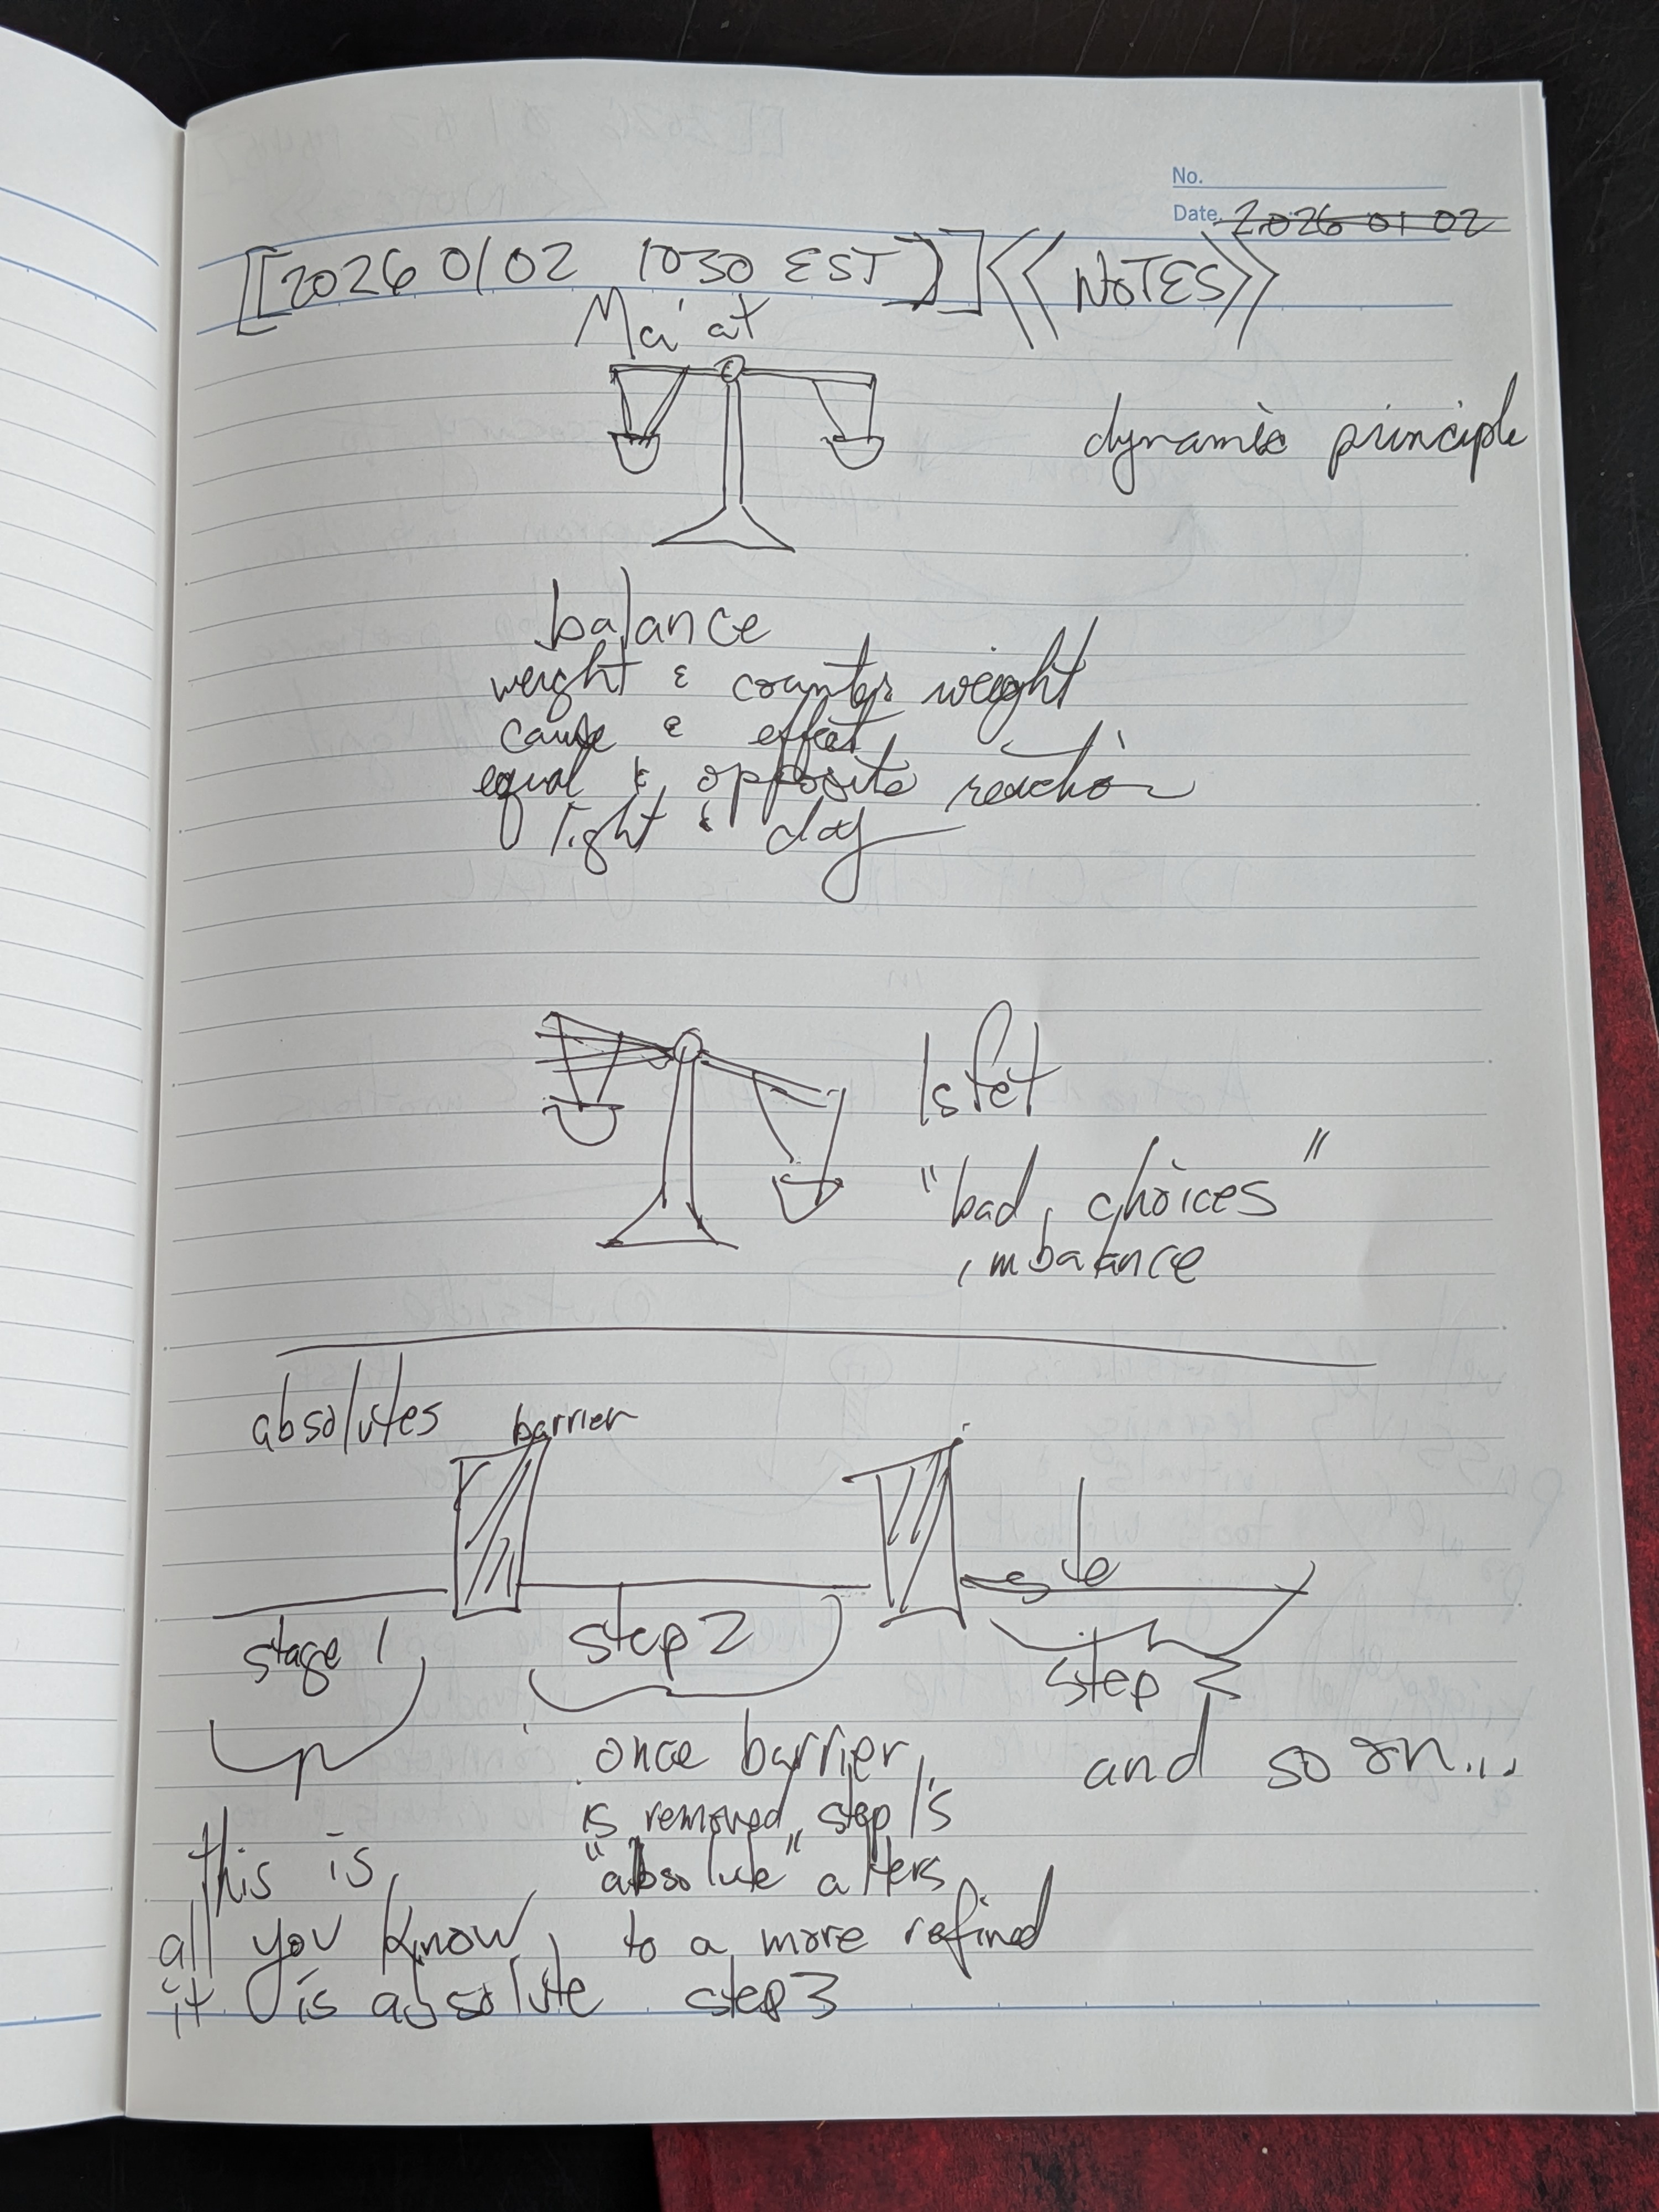 No.
Date. 2026 01 02
[[2026 01 02 1030 EST]] << NOTES >>
Ma'at
dynamic principle
balance
weight & counter weight
cause & effect
equal & opposite reaction
light & day
Isfet
"bad choices"
imbalance
absolutes
barrier
stage 1
step 2
step 3
once barrier
is removed, step 1's
"absolute" alters
to a more refined
step 3
and so on...
this is
all you know,
it is absolute